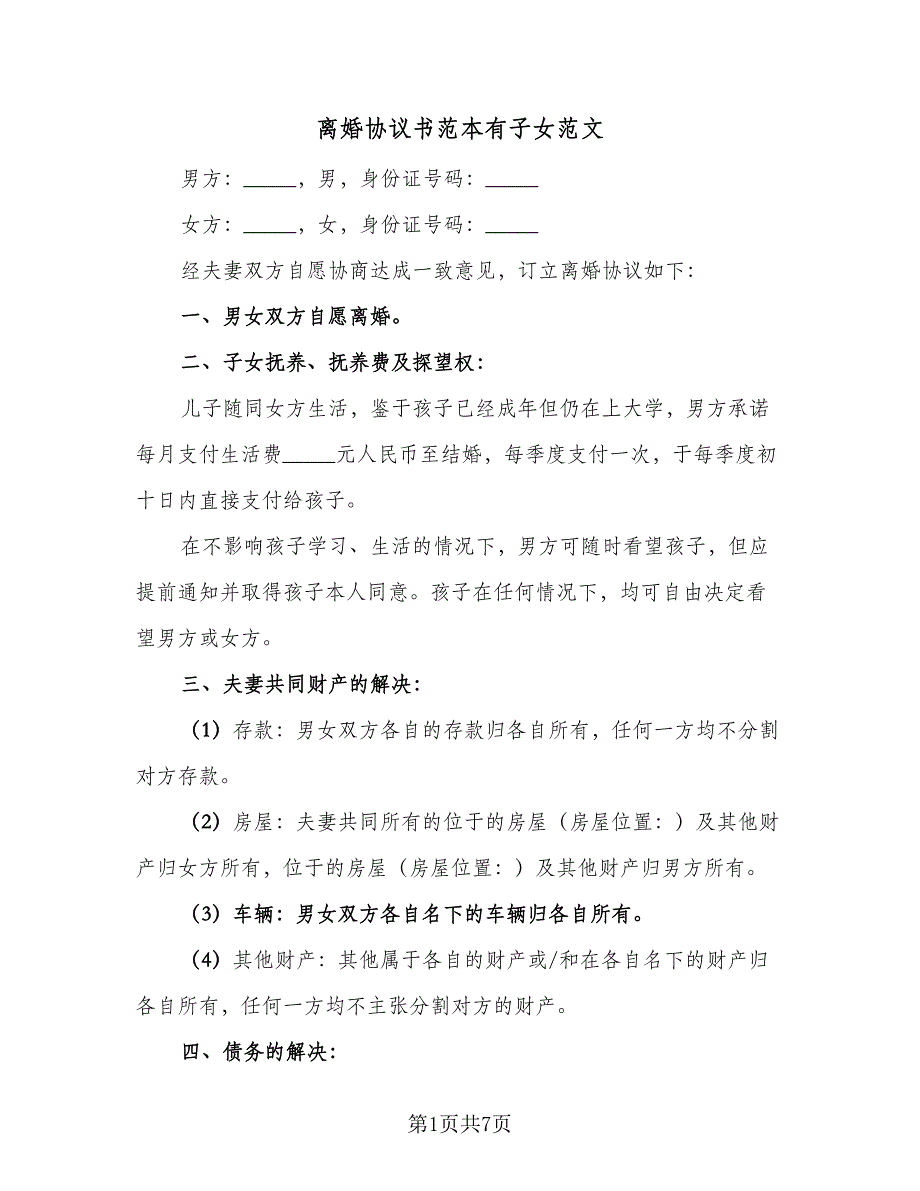 离婚协议书范本有子女范文
男方：_____，男，身份证号码：_____
女方：_____，女，身份证号码：_____
经夫妻双方自愿协商达成一致意见，订立离婚协议如下：
一、男女双方自愿离婚。
二、子女抚养、抚养费及探望权：
儿子随同女方生活，鉴于孩子已经成年但仍在上大学，男方承诺
每月支付生活费_____元人民币至结婚，每季度支付一次，于每季度初
十日内直接支付给孩子。
在不影响孩子学习、生活的情况下，男方可随时看望孩子，但应
提前通知并取得孩子本人同意。孩子在任何情况下，均可自由决定看
望男方或女方。
三、夫妻共同财产的解决：
（1）存款：男女双方各自的存款归各自所有，任何一方均不分割
对方存款。
（2）房屋：夫妻共同所有的位于的房屋（房屋位置：）及其他财
产归女方所有，位于的房屋（房屋位置：）及其他财产归男方所有。
（3）车辆：男女双方各自名下的车辆归各自所有。
（4）其他财产：其他属于各自的财产或/和在各自名下的财产归
各自所有，任何一方均不主张分割对方的财产。
四、债务的解决：
第1页共7页